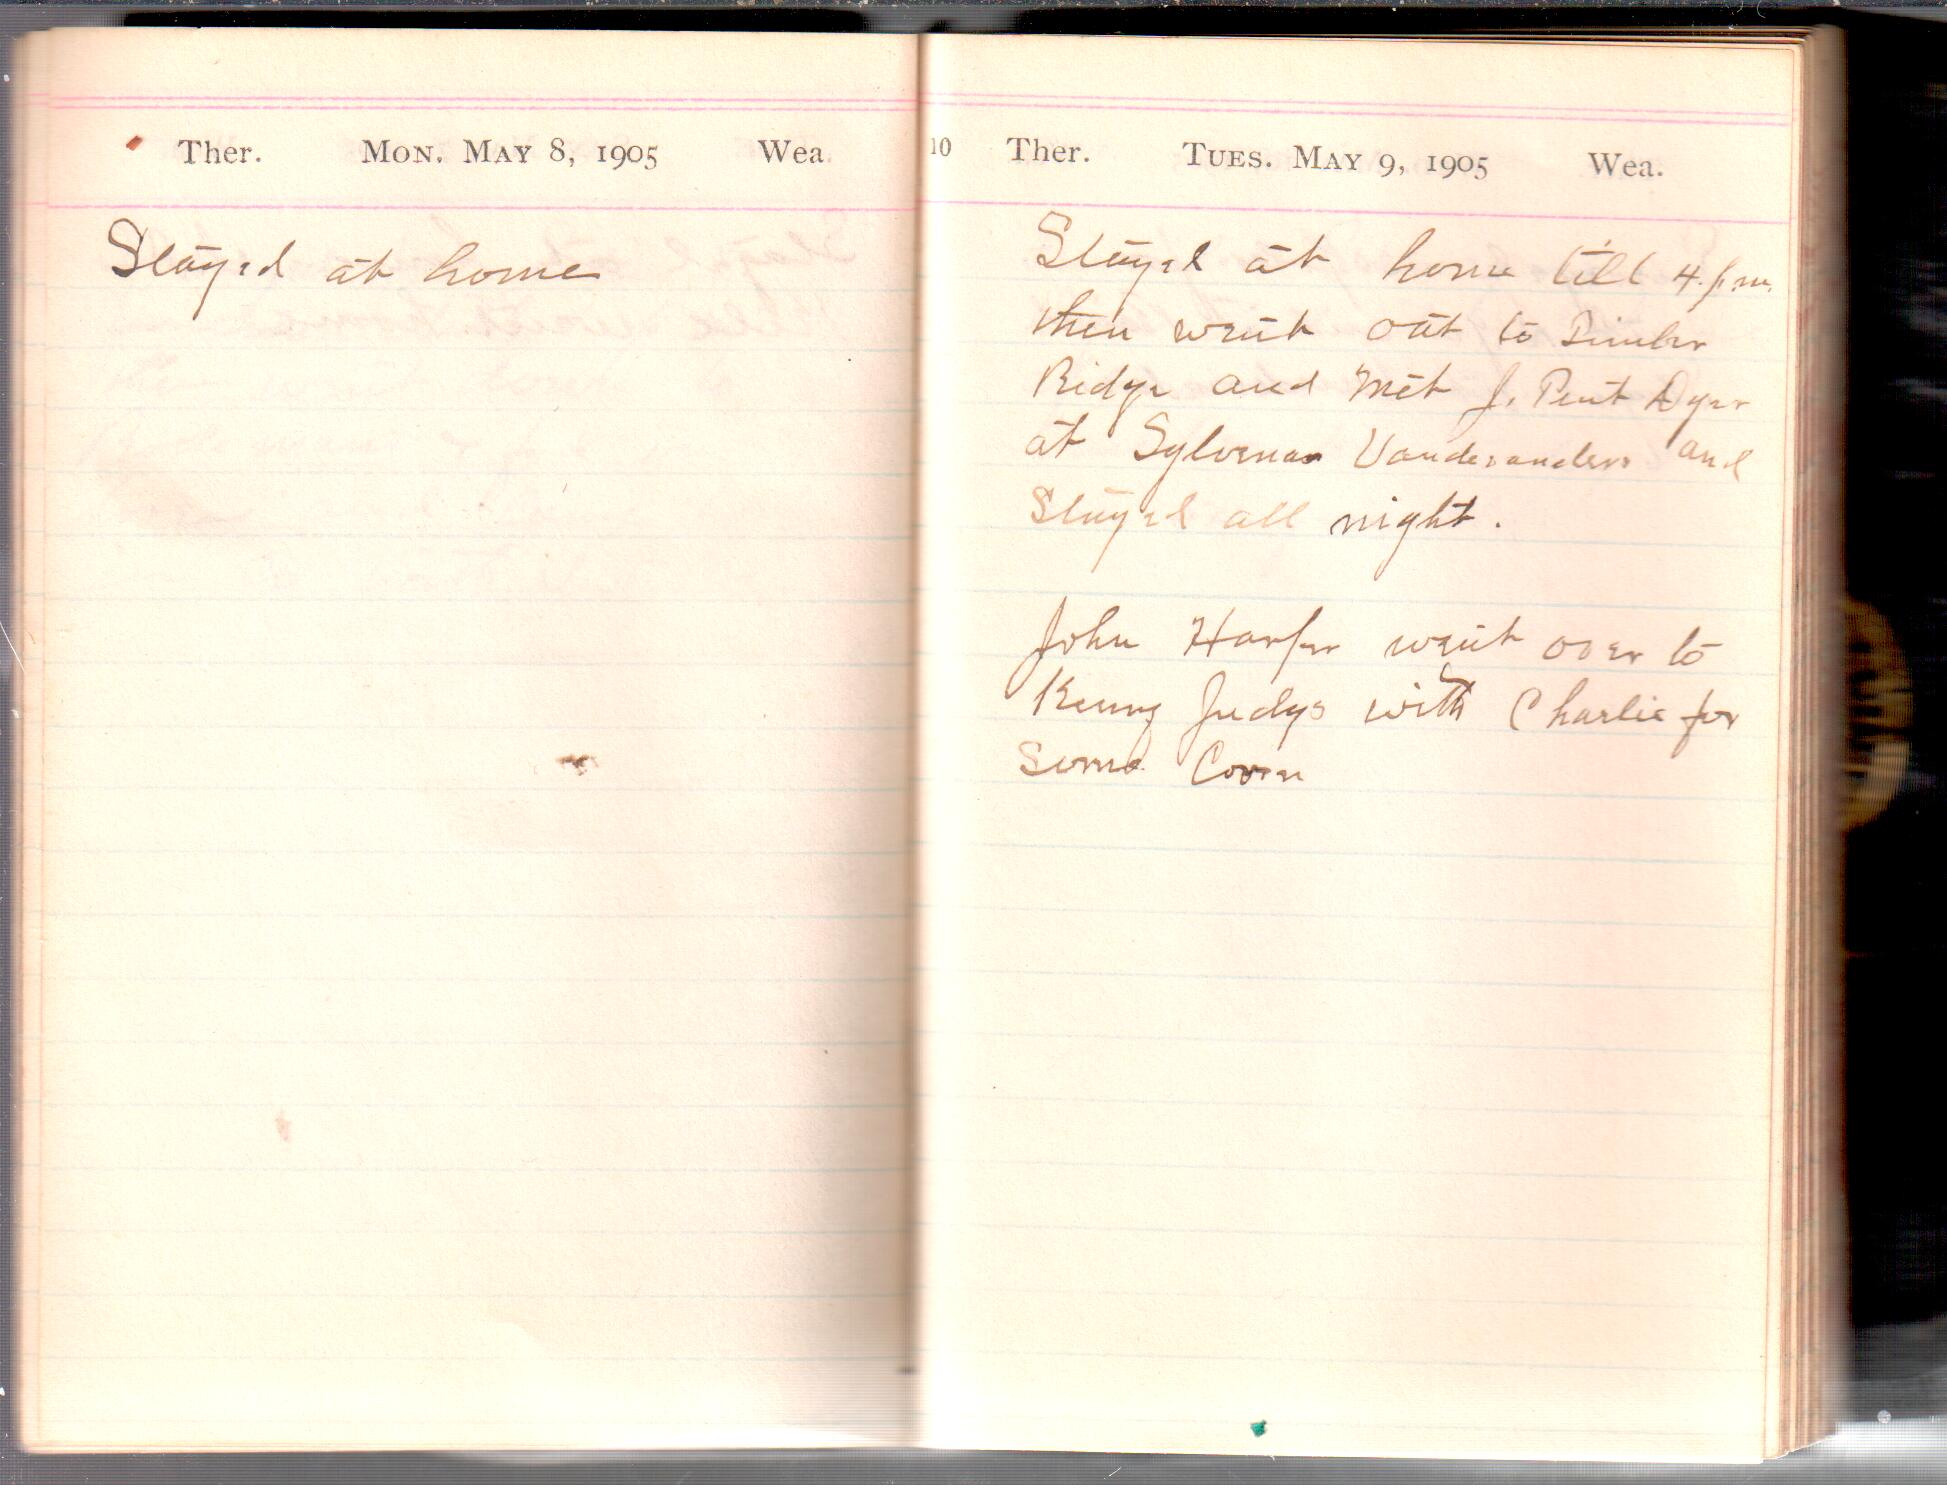 Ther. MON. MAY 8, 1905 Wea.
Stayed at home
10 Ther. TUES. MAY 9, 1905 Wea.
Stayed at home till 4. p.m.
then went out to Timber
Ridge and Met J. Pent Dyer
at Sylvenas and
Stayed all night.
John Harper went over to
Kenny Judys with Charlie for
Some Corn